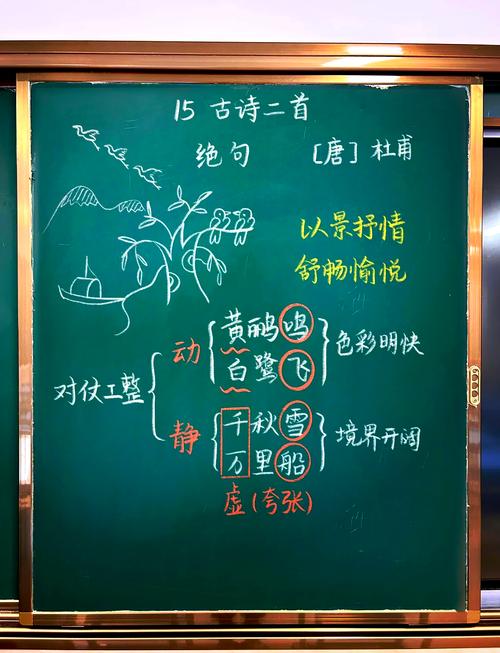 15 古诗二首
绝句 [唐] 杜甫
以景抒情
舒畅愉悦
对仗工整
动
黄鹂鸣
白鹭飞
色彩明快
静
千秋雪
万里船
境界开阔
虚(夸张)